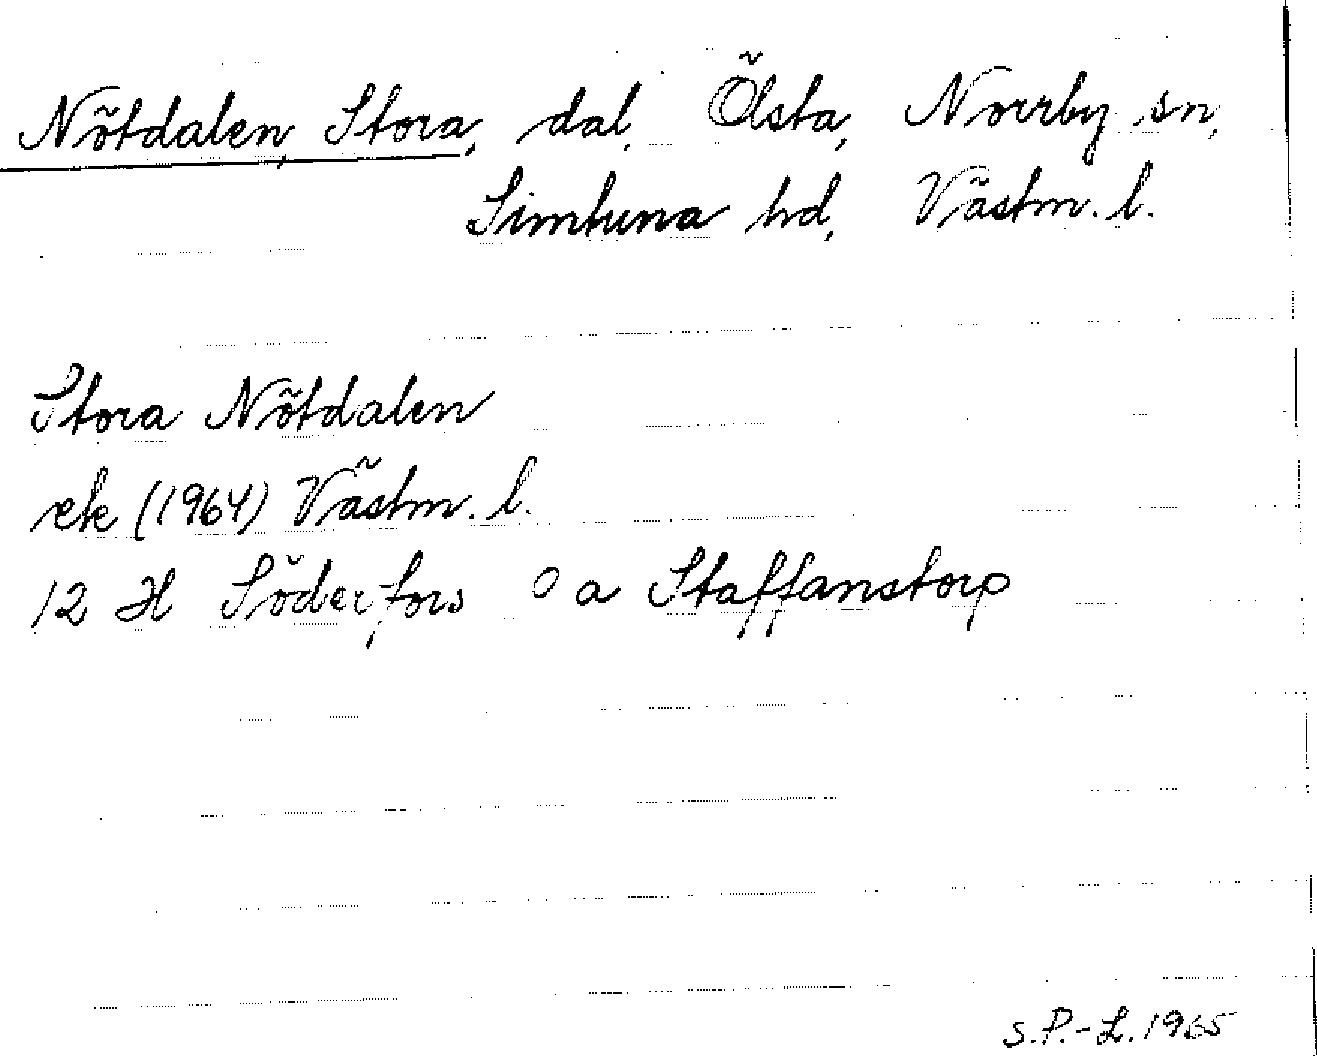 Nötdalen, Stora, dal, Ölsta, Norrby sn,
Simtuna hd, Västm. l.
Stora Nötdalen
ek (1964) Västm. l.
12 H Söderfors 0 a Staffanstorp
S.P.-L. 1965